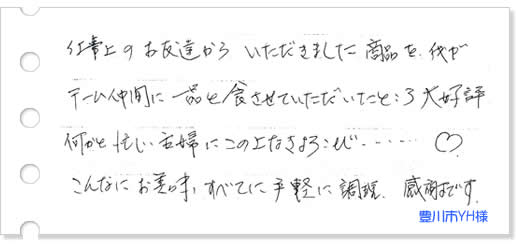 仕事上のお友達から いただきました商品を、我が
チーム仲間に一品と食させていただいたところ大好評
何かと忙しい主婦にこの上なきよろこび……♡
こんなにお美味、すべてに手軽に調理、感謝です。
豊川市YH様